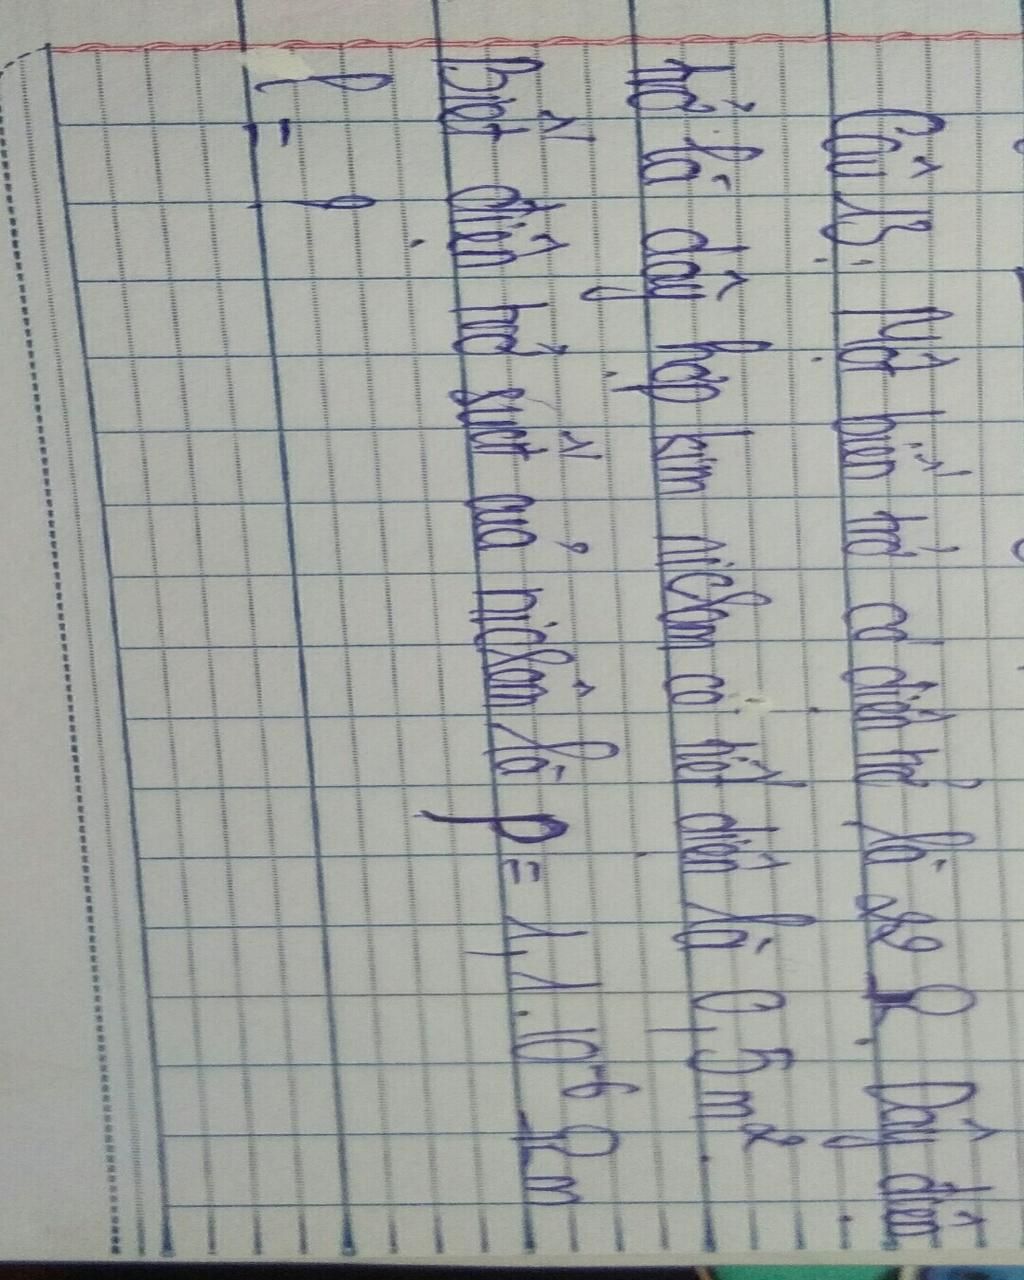 Câu 13: Một biến trở có điện trở là 22 Ω. Dây điện
trở là dây hợp kim nicrom có tiết diện là 0,5 m².
Biết điện trở suất của nicrôm là ρ = 1,1.10⁻⁶ Ωm
l = ?